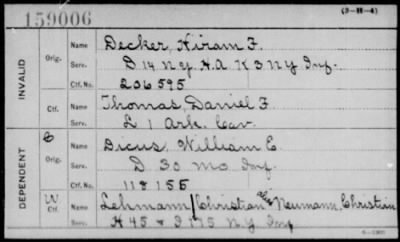 159006
(3-H-4)
INVALID
Orig.
Name Decker, Hiram F.
Serv. D 14 N.Y. H.A. K 3 N.Y. Inf.
Ctf. No. 206595
Ctf.
Name Thomas, Daniel F.
Serv. L 1 Ark. Cav.
DEPENDENT
Orig.
Name Dicus, William E.
Serv. D 30 Mo Inf.
Ctf. No. 118155
W
Ctf.
Name Lehmann, Christian alias Neumann, Christian
Serv. H 45 & I 175 N.Y. Inf